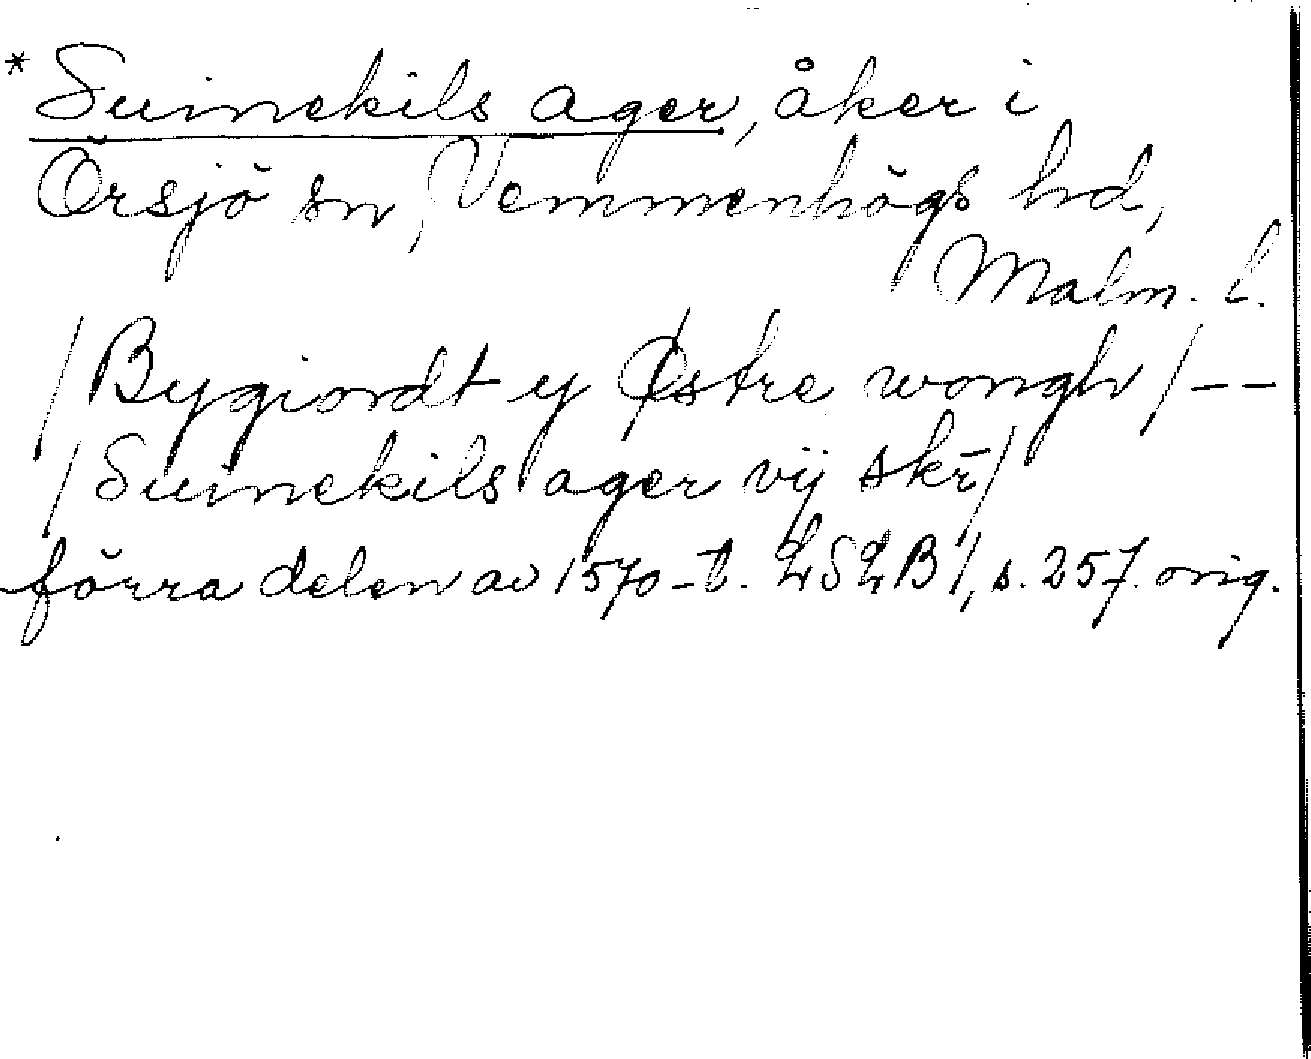 * Suinekils ager, åker i
Örsjö sn, Vemmenhögs hd,
Malm. l.
/Bygiordt y Østre wongh/--
/Suinekils ager vij skr̄/
förra delen av 1570-t. LSLB 1, s. 257. orig.